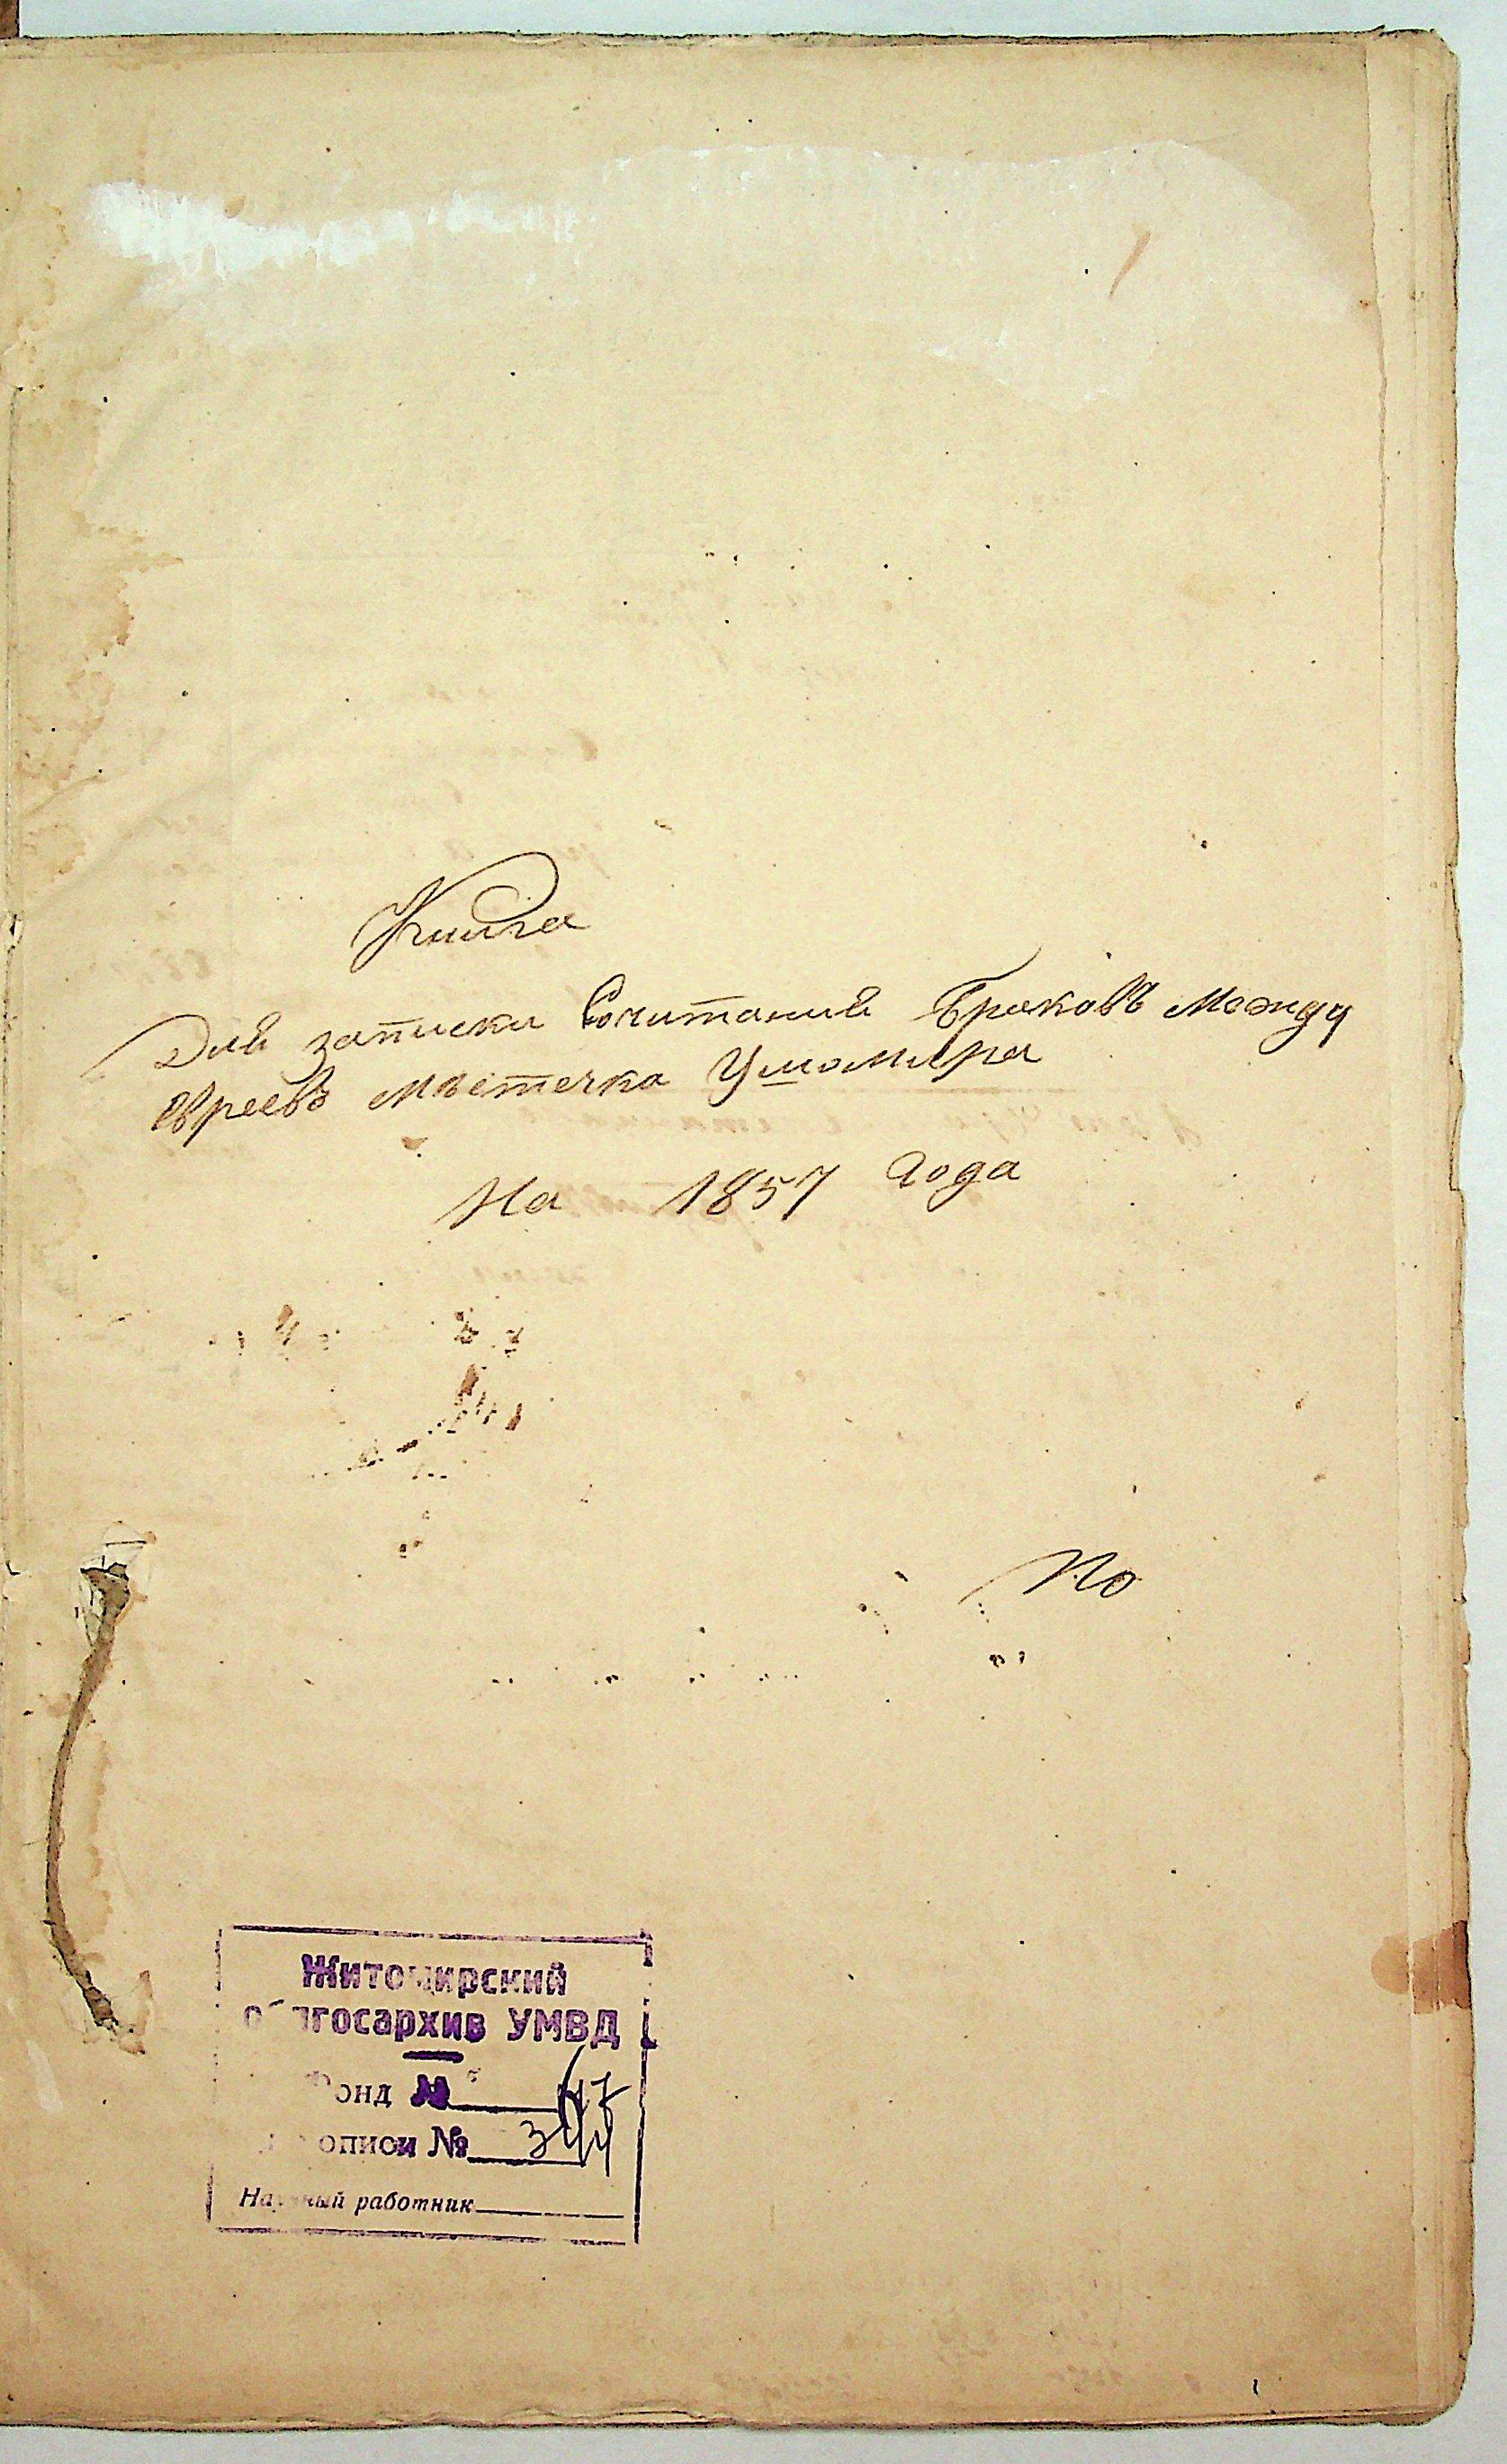 Книга
Для записки Сочитания Браковъ Между
евреевъ Местечка Ушомира
На 1857 Года
По
Житомирский
облгосархив УМВД
Фонд № 67
описи № 344
Научный работник